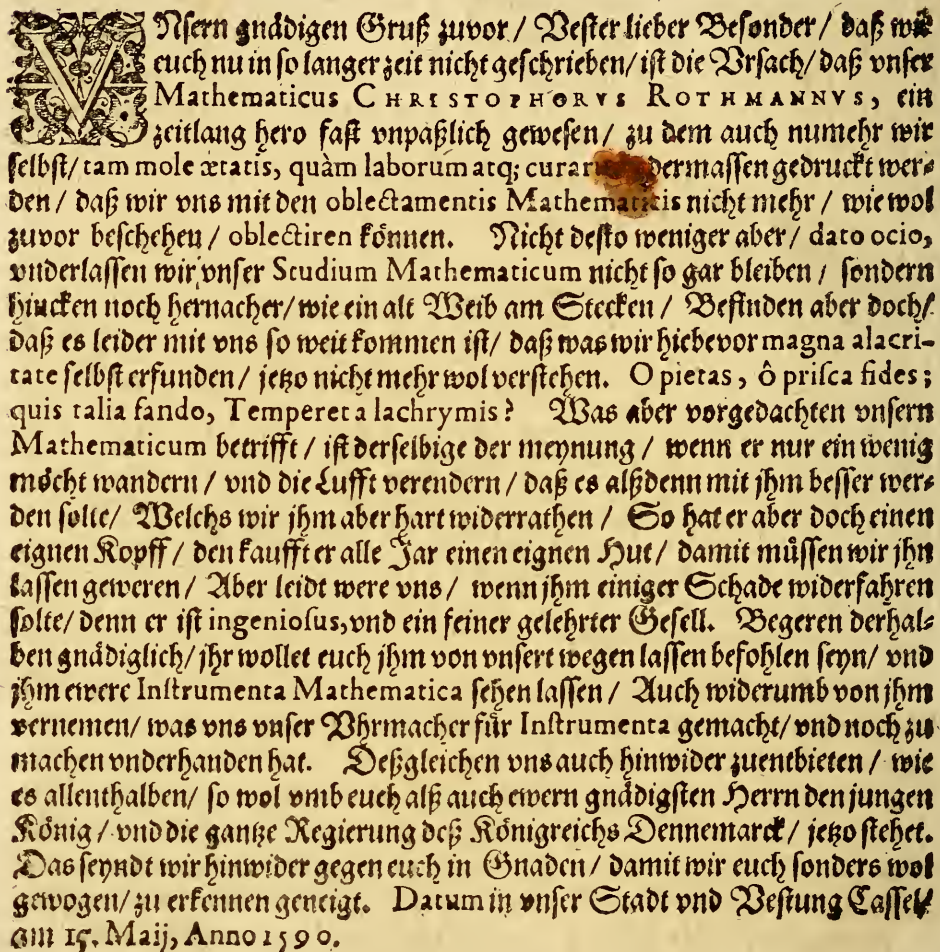 VNsern gnädigen Gruß zuvor / Vester lieber Besonder / daß wir
euch nu in so langer zeit nicht geschrieben / ist die Vrsach / daß vnser
Mathematicus CHRISTOPHORVS ROTHMANNVS, ein
zeitlang hero fast vnpaßlich gewesen / zu dem auch numehr wir
selbst / tam mole ætatis, quàm laborum atq; curar dermassen gedruckt wer⸗
den / daß wir vns mit den oblectamentis Mathematicis nicht mehr / wie wol
zuvor beschehen / oblectiren können. Nicht desto weniger aber / dato ocio,
vnderlassen wir vnser Studium Mathematicum nicht so gar bleiben / sondern
hincken noch hernacher / wie ein alt Weib am Stecken / Befinden aber doch /
daß es leider mit vns so weit kommen ist / daß was wir hiebevor magna alacri-
tate selbst erfunden / jetzo nicht mehr wol verstehen. O pietas, ô prisca fides;
quis talia fando, Temperet a lachrymis? Was aber vorgedachten vnsern
Mathematicum betrifft / ist derselbige der meynung / wenn er nur ein wenig
möcht wandern / vnd die Lufft verendern / daß es alßdenn mit jhm besser wer⸗
den solte / Welchs wir jhm aber hart widerrathen / So hat er aber doch einen
eignen Kopff / den kaufft er alle Jar einen eignen Hut / damit müssen wir jhn
lassen geweren / Aber leidt were vns / wenn jhm einiger Schade widerfahren
solte / denn er ist ingeniosus, vnd ein feiner gelehrter Gesell. Begeren derhal⸗
ben gnädiglich / jhr wollet euch jhm von vnsert wegen lassen befohlen seyn / vnd
jhm ewere Instrumenta Mathematica sehen lassen / Auch widerumb von jhm
vernemen / was vns vnser Vhrmacher für Instrumenta gemacht / vnd noch zu
machen vnderhanden hat. Deßgleichen vns auch hinwider zuentbieten / wie
es allenthalben / so wol vmb euch alß auch ewern gnädigsten Herrn den jungen
König / vnd die gantze Regierung deß Königreichs Dennemarck / jetzo stehet.
Das seyndt wir hinwider gegen euch in Gnaden / damit wir euch sonders wol
gewogen / zu erkennen geneigt. Datum in vnser Stadt vnd Vestung Cassel /
am 15. Maij, Anno 1590.